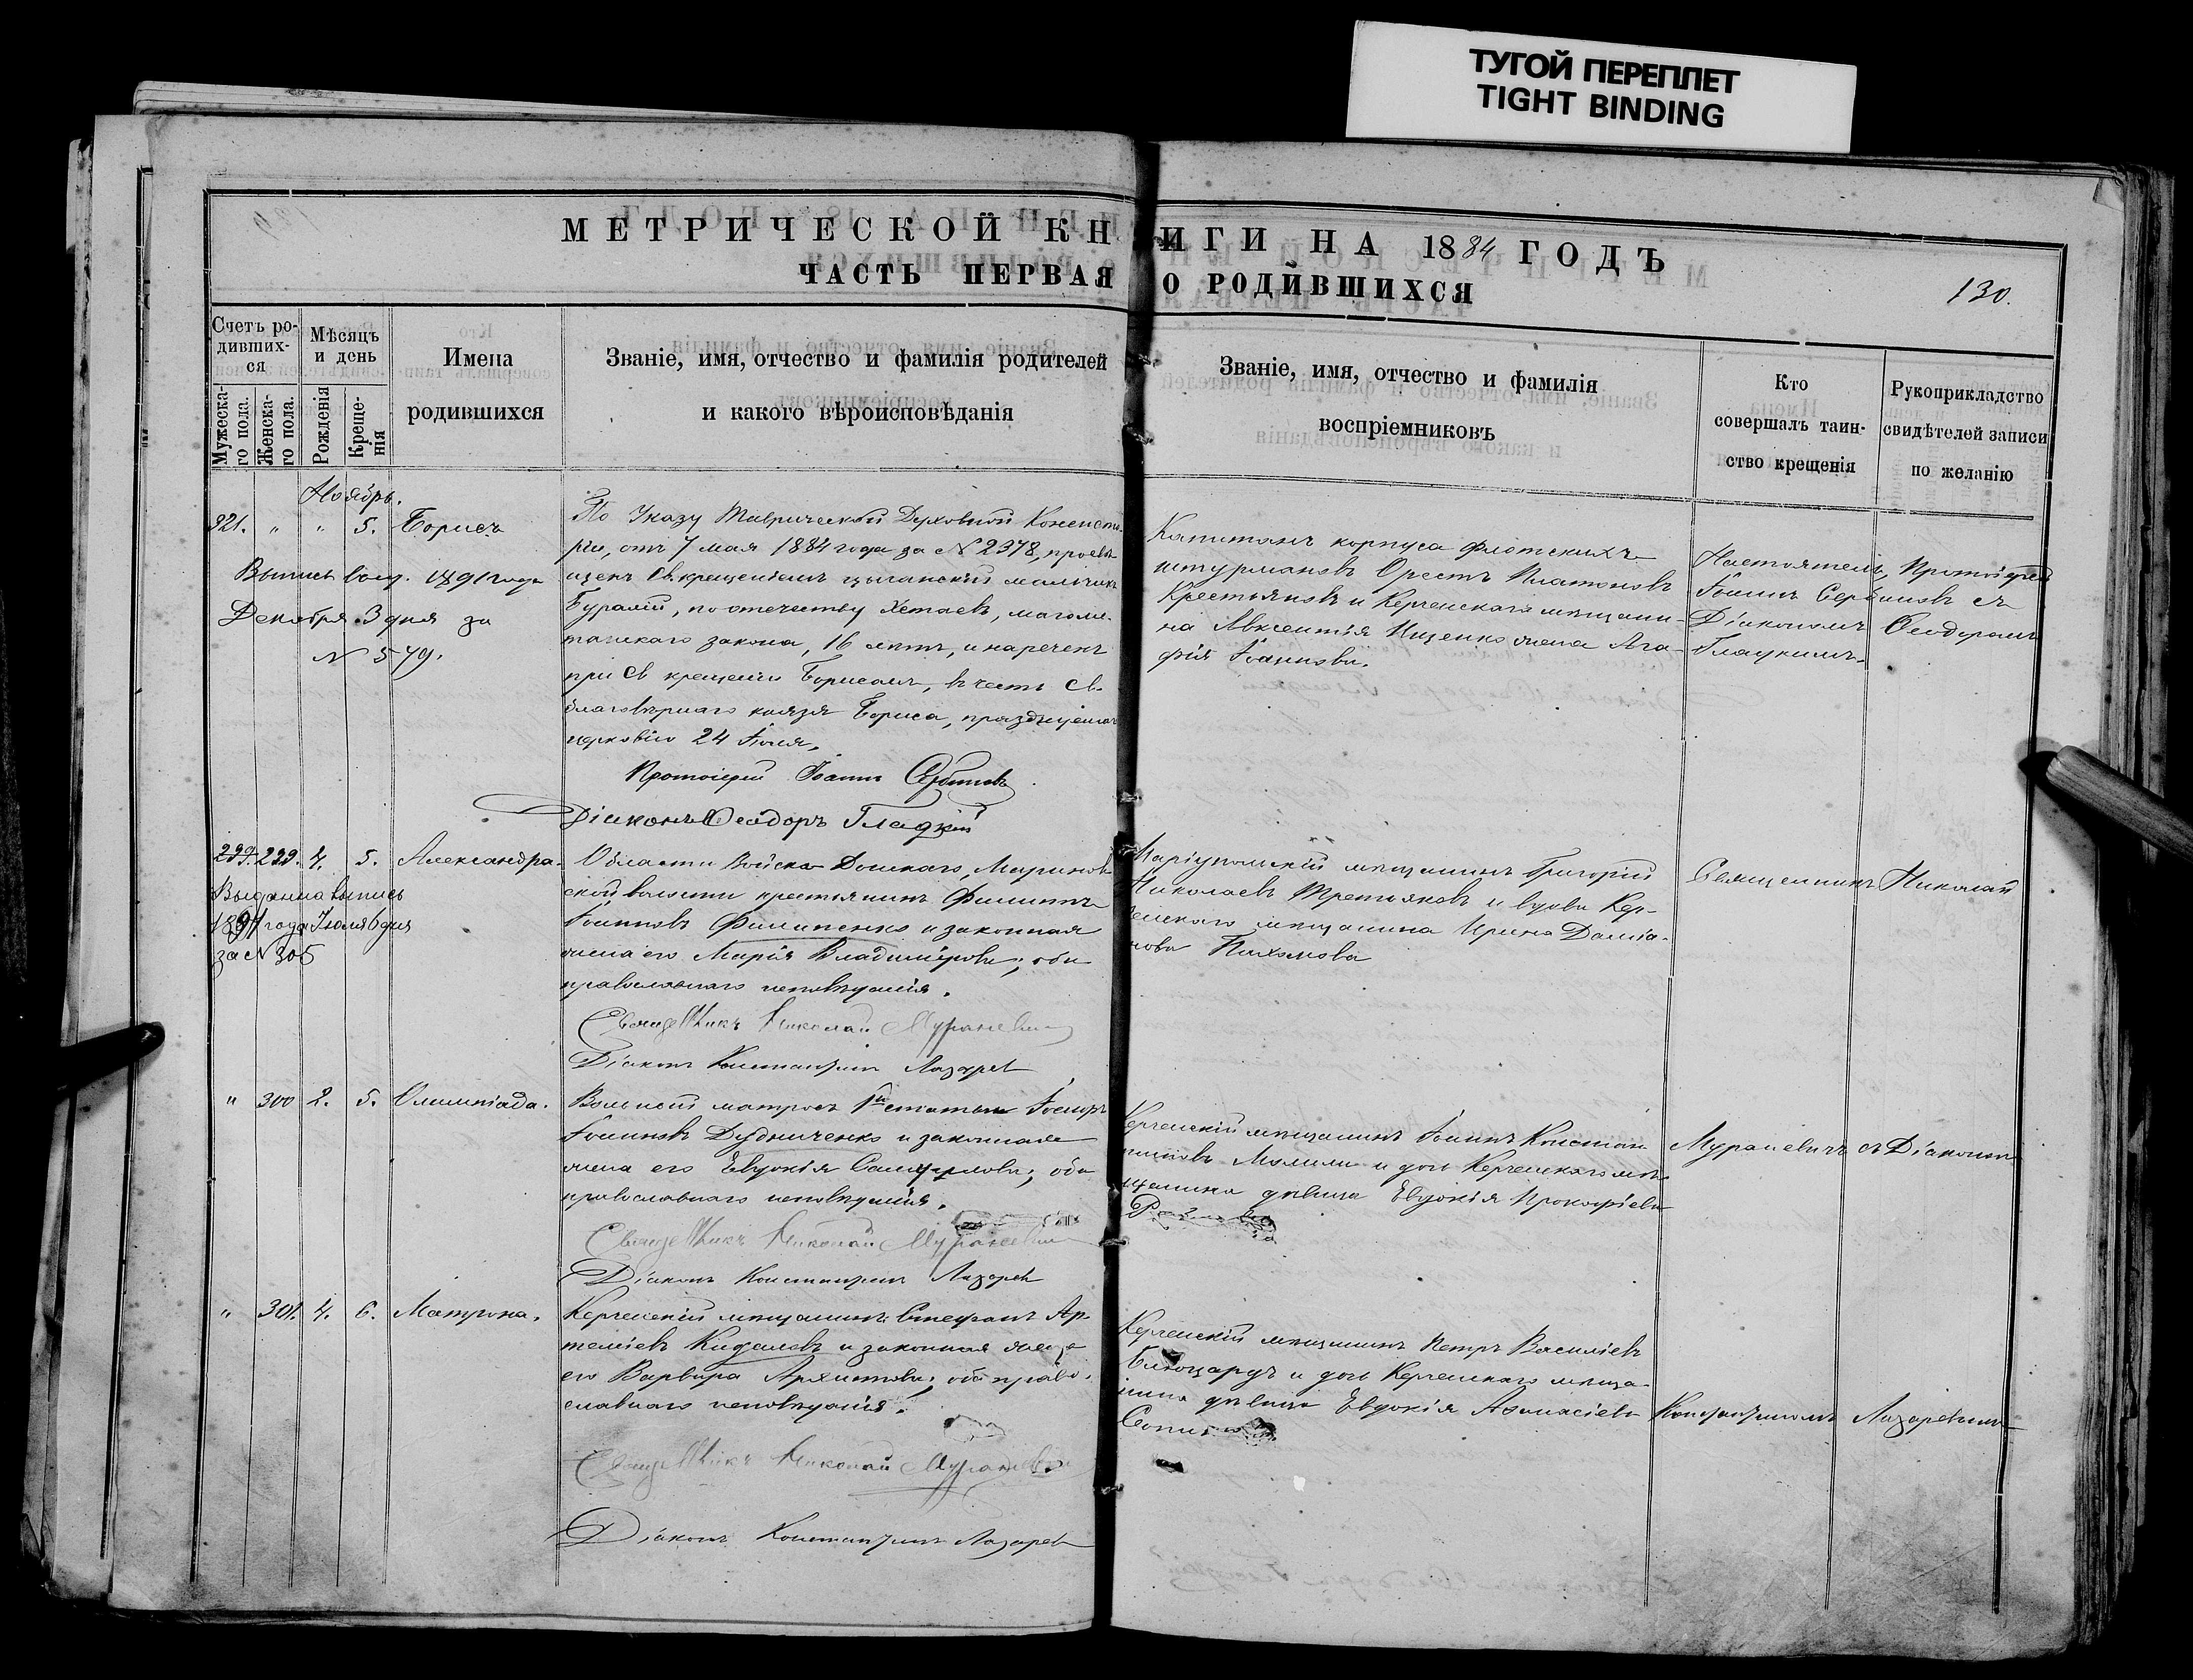 ТУГОЙ ПЕРЕПЛЕТ
TIGHT BINDING
МЕТРИЧЕСКОЙ КНИГИ НА 1884 ГОДЪ
ЧАСТЬ ПЕРВАЯ О РОДИВШИХСЯ
130.
Счетъ ро-
дивших-
ся
Мужеска-
го пола.
Женска-
го пола.
Мѣсяцъ
и день
Рожденія
Креще-
нія
Имена
родившихся
Званіе, имя, отчество и фамилія родителей
и какого вѣроисповѣданія
Званіе, имя, отчество и фамилія
воспріемниковъ
Кто
совершалъ таин-
ство крещенія
Рукоприкладство
свидѣтелей записи
по желанію
Ноябрь.
321. " " 5. Борисъ
Выпись 1891 года
Декабря 3 дня за
N 579.
По Указу Таврической Духовной Консисто-
ріи, отъ 7 мая 1884 года за N 2378, просвѣ-
щенъ Св. крещеніемъ цыганскій мальчикъ
по отечеству магоме-
танскаго закона, 16 лѣтъ, и нареченъ
при Св крещеніи Борисомъ, въ честь Св.
благовѣрнаго князя Бориса, празднуемаго
церковію 24 Іюля.
Протоіерей Іоаннъ Сербиновъ
Діаконъ Ѳеодоръ Гладкій
Капитанъ корпуса флотскихъ
штурмановъ Орестъ Платоновъ
Крестьяновъ и Керченскаго мѣщани-
на Авксентія Ищенко жена Ага-
фія Іоаннова.
Настоятель, Протоіерей
Іоаннъ Сербиновъ съ
Діакономъ Ѳеодоромъ
Гладкимъ.
299. 299. 4. 5. Александра.
Выдана выпись
1891 года Іюля 6 дня
за N 305
Области Войска Донскаго,
ской волости крестьянинъ Филиппъ
Іоанновъ Филипенко и законная
жена его Марія Владимірова; оба
православнаго исповѣданія.
Священникъ Николай Мураневичъ
Діаконъ Константинъ Лазаревъ
Маріупольскій мѣщанинъ Григорій
Николаевъ Третьяковъ и вдова Кер-
ченскаго мѣщанина Ирина Даміа-
нова Пахомова
Священникъ Николай
" 300 2. 5. Олимпіада.
Вольный матросъ 1й статьи Іосифъ
Іоанновъ Дудниченко и законная
жена его Евдокія оба
православнаго исповѣданія.
Священникъ Николай Мураневичъ
Діаконъ Константинъ Лазаревъ
Керченскій мѣщанинъ Іоаннъ Констан-
тиновъ и дочь Керченскаго мѣ-
щанина дѣвица Евдокія Прокофіева
Мураневичъ съ Діакономъ
" 301. 4. 6. Матрона.
Керченскій мѣщанинъ Стефанъ Ар-
теміевъ и законная жена
его Варвара Архипова; оба право-
славнаго исповѣданія.
Священникъ Николай Мураневичъ
Діаконъ Константинъ Лазаревъ
Керченскій мѣщанинъ Петръ Василіевъ
и дочь Керченскаго мѣща-
нина дѣвица Евдокія Аѳанасіева
Константиномъ Лазаревымъ